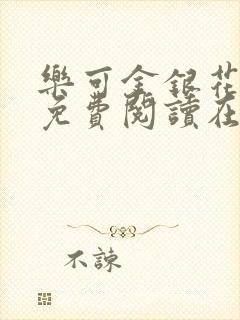 樂可金銀花
免費閱讀在
不諫